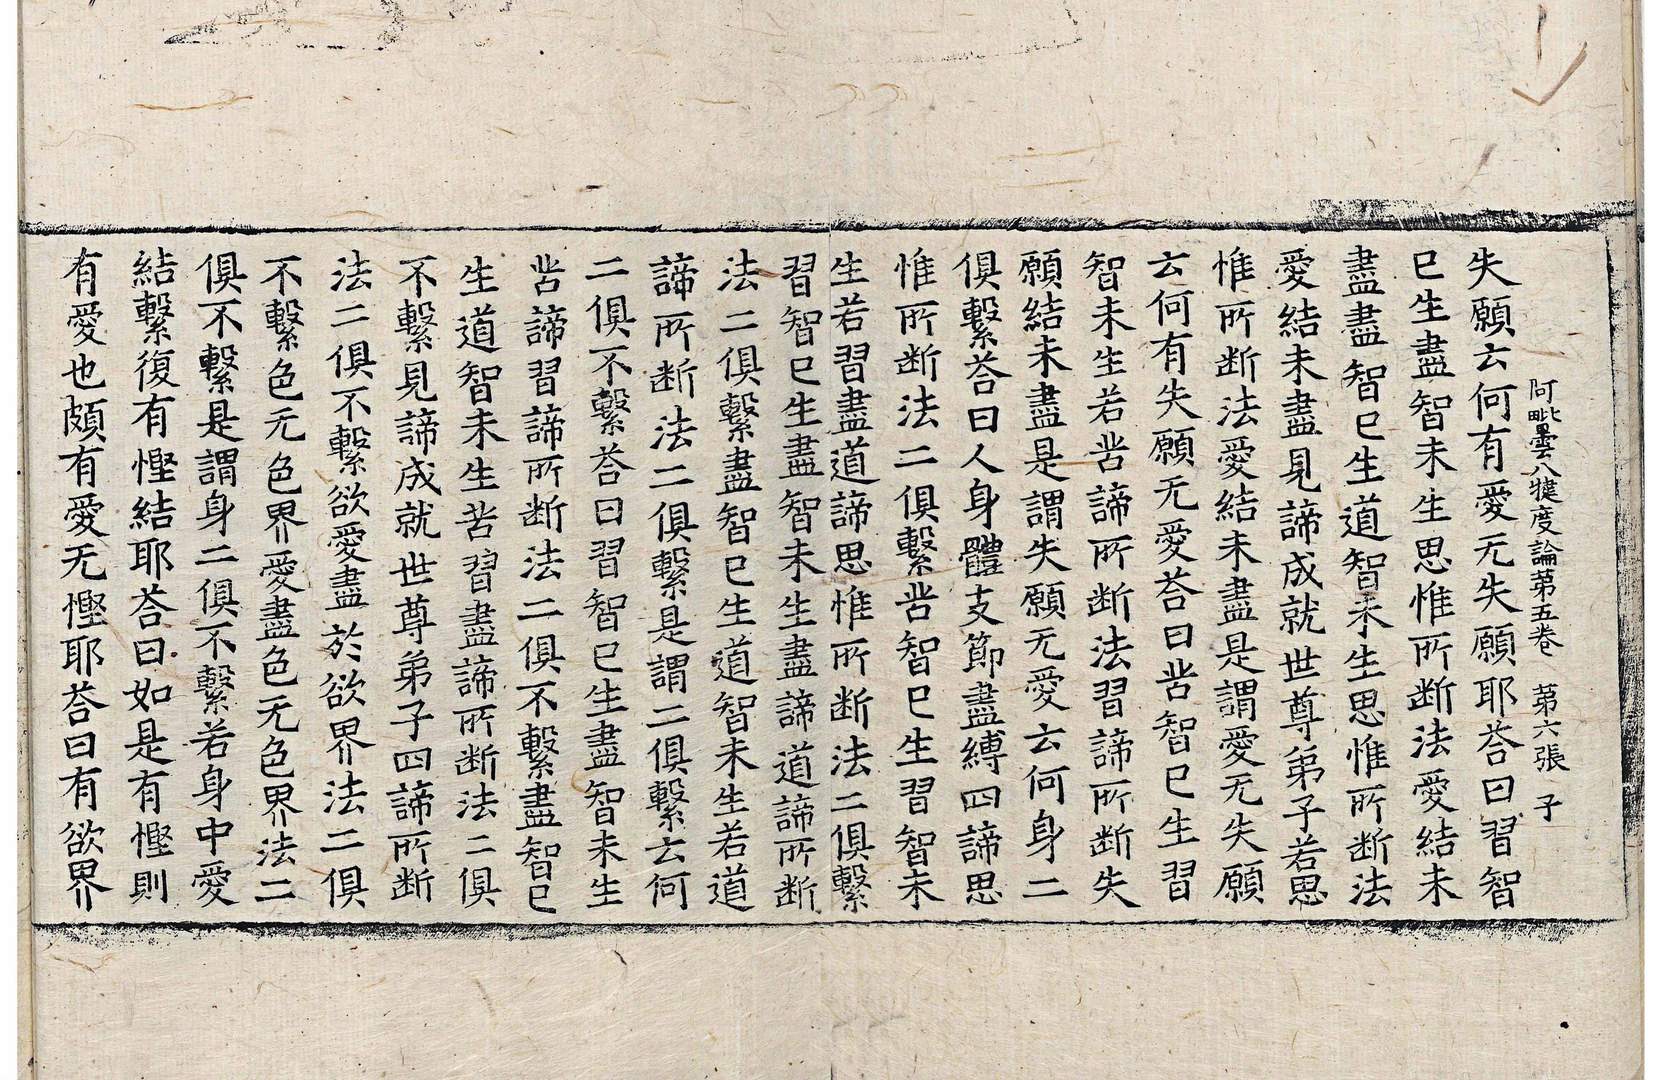 阿毗曇八犍度論第五卷　第六張　子
失願云何有愛无失願耶荅曰習智
已生盡智未生思惟所斷法愛結未
盡盡智已生道智未生思惟所斷法
愛結未盡見諦成就世尊弟子若思
惟所斷法愛結未盡是謂愛无失願
云何有失願无愛荅曰苦智已生習
智未生若苦諦所斷法習諦所斷失
願結未盡是謂失願无愛云何身二
俱繫荅曰人身體支節盡縛四諦思
惟所斷法二俱繫苦智已生習智未
生若習盡道諦思惟所斷法二俱繫
習智已生盡智未生盡諦道諦所斷
法二俱繫盡智已生道智未生若道
諦所斷法二俱繫是謂二俱繫云何
二俱不繫荅曰習智已生盡智未生
苦諦習諦所斷法二俱不繫盡智已
生道智未生苦習盡諦所斷法二俱
不繫見諦成就世尊弟子四諦所斷
法二俱不繫欲愛盡於欲界法二俱
不繫色无色界愛盡色无色界法二
俱不繫是謂身二俱不繫若身中愛
結繫復有慳結耶荅曰如是有慳則
有愛也頗有愛无慳耶荅曰有欲界